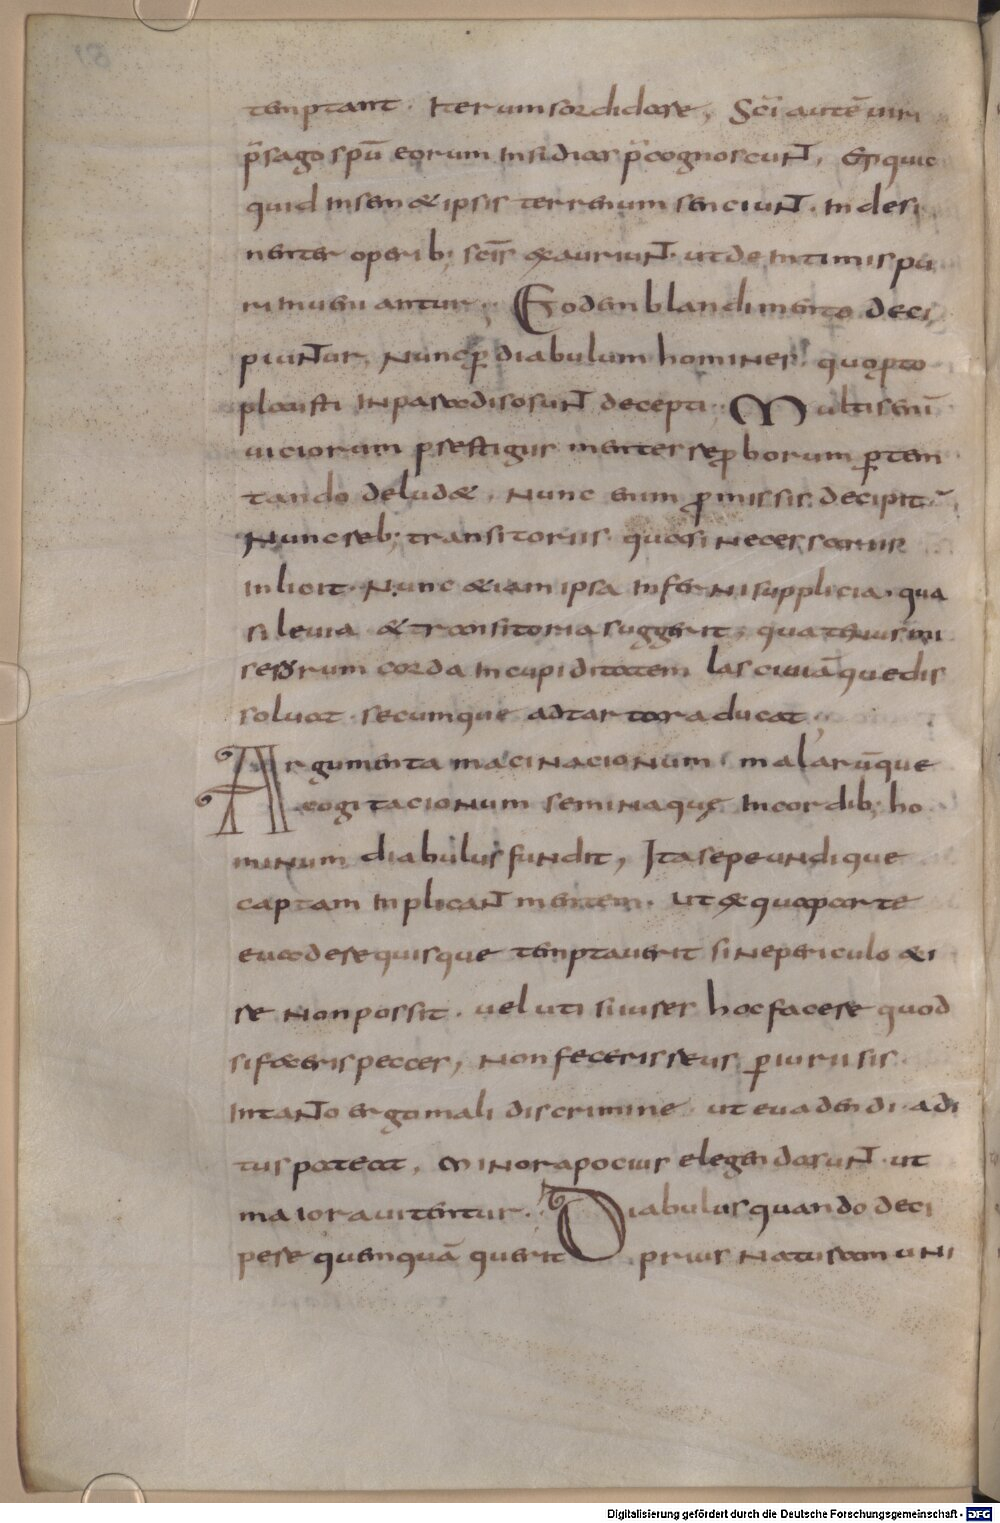 temptant. Iterum sordidare, Sc̄i autē uiri
p̄sago spū eorum insidias p̄cognoscunt, & siquic
quid in sem&ipsis terrenum senciunt. indesi
nenter operib; sc̄is exauriunt. ut de intimis pu
ri inueniantur; Eodem blandimento deci
piuntur nunc ꝑ diabulum homines. quo proto
plausti in paradiso sunt decepti; Multis enī
uiciorum prestigiis mentes reproborum ꝑtem
tando delud&, nunc enim promissis decipit,
Nunc reb; transitoriis quasi necessariis
inlicit. Nunc &iam ipsa inferni supplicia. qua
si leuia & transitoria suggerit, quatenus mi
serorum corda in cupiditatem lasciuiāque dis
soluat. secumque ad tartara ducat;
Argumenta macinacionum malarūque
cogitacionum semina que in cordib; ho
minum diabulus fundit, Ita sepe undique
captam inplicant mentem. ut ex qua parte
euadere quisque temptauerit sine periculo exi
re non possit. uel uti si iures hoc facere quod
si feceris pecces, non feceris reus periurii sis.
In tanto ergo mali discrimine. ut euadendi. adi
tus pateat, minora pocius elegenda sunt. ut
maiora uitentur. Diabulus quando deci
pere quemquā querit prius naturam uni
Digitalisierung gefördert durch die Deutsche Forschungsgemeinschaft - DFG